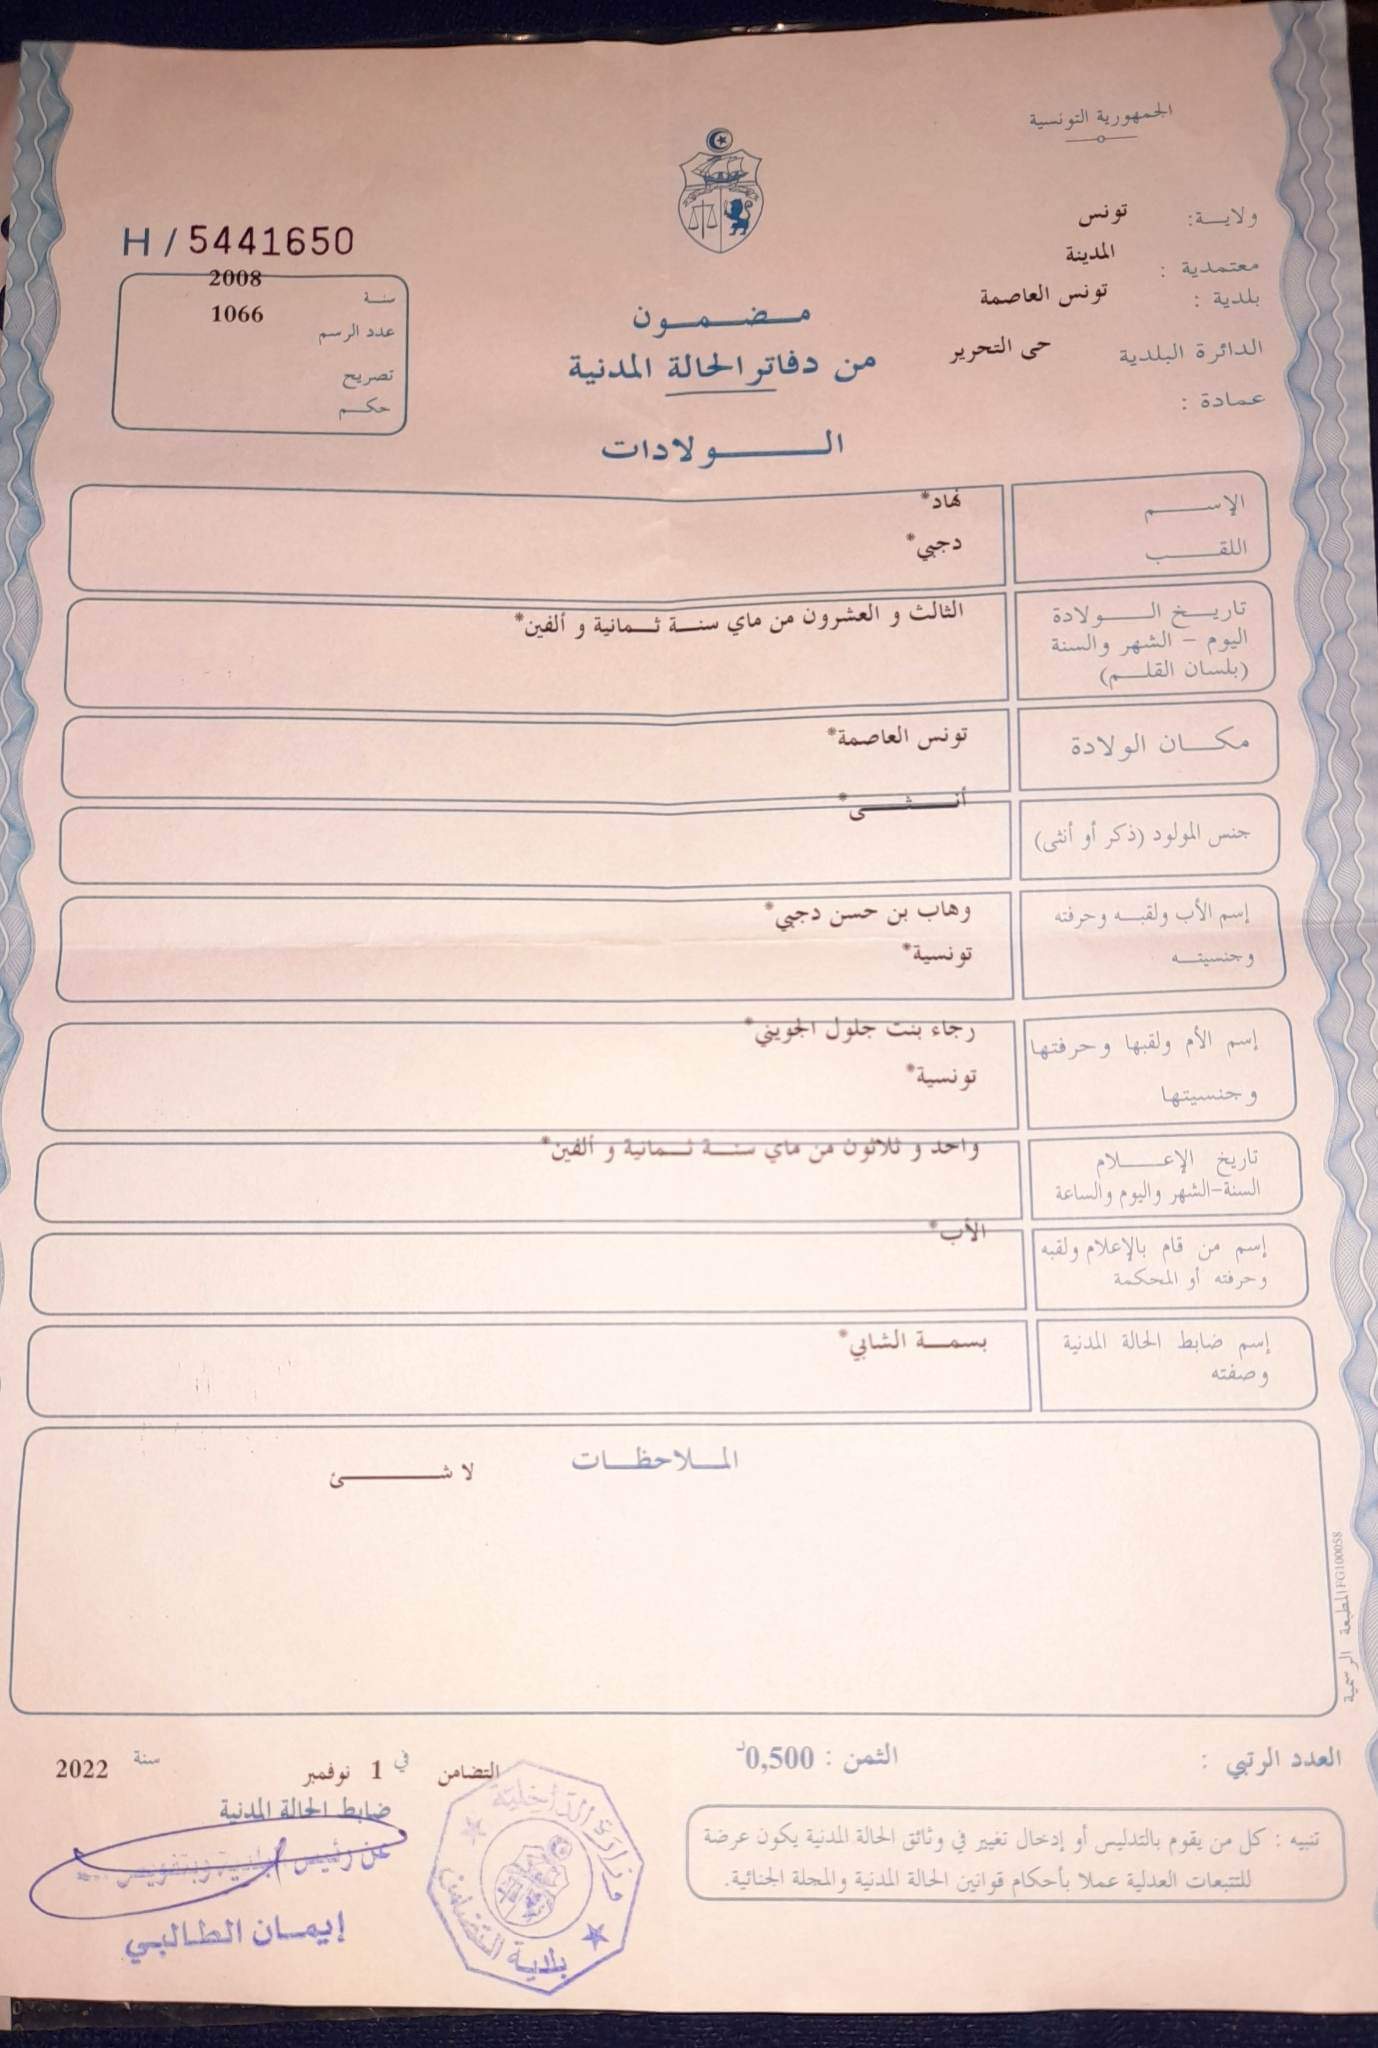 الجمهورية التونسية
ولايـــة: تونس
معتمدية : المدينة
بلدية : تونس العاصمة
الدائرة البلدية حى التحرير
عمادة :
H / 5441650
سنة 2008
عدد الرسم 1066
تصريح
حكـــم
مـــضـــمـــون
من دفاتر الحالة المدنية
الـــــــولادات
الإســـــم نهاد*
اللقـــــب دجبي*
تاريـــخ الـــــولادة الثالث و العشرون من ماي سنـــة ثـــمانية و ألفين*
اليوم – الشهر والسنة
(بلسان القلـــم)
مكـــان الولادة تونس العاصمة*
جنس المولود (ذكر أو أنثى) أنـــــثـــــى*
إسم الأب ولقبـــه وحرفته وهاب بن حسن دجبي*
وجنسيتـــه تونسية*
إسم الأم ولقبها وحرفتها رجاء بنت جلول الجويني*
وجنسيتها تونسية*
تاريخ الإعـــــلام واحد و ثلاثون من ماي سنـــة ثـــمانية و ألفين*
السنة-الشهر واليوم والساعة
إسم من قام بالإعلام ولقبه الأب*
وحرفته أو المحكمة
إسم ضابط الحالة المدنية بسمـــة الشابي*
وصفته
المـــلاحظـــات
لا شـــــــئ
المطبعة الرسمية FG100058
العدد الرتبي :
الثمن : 0,500د
التضامن في 1 نوفمبر سنة 2022
ضابط الحالة المدنية
عن رئيس البلدية وبتفويض
إيمـــان الطـالبـي
وزارة الداخلية
بلدية التضامن
تنبيه : كل من يقوم بالتدليس أو إدخال تغيير في وثائق الحالة المدنية يكون عرضة
للتتبعات العدلية عملا بأحكام قوانين الحالة المدنية والمجلة الجنائية.